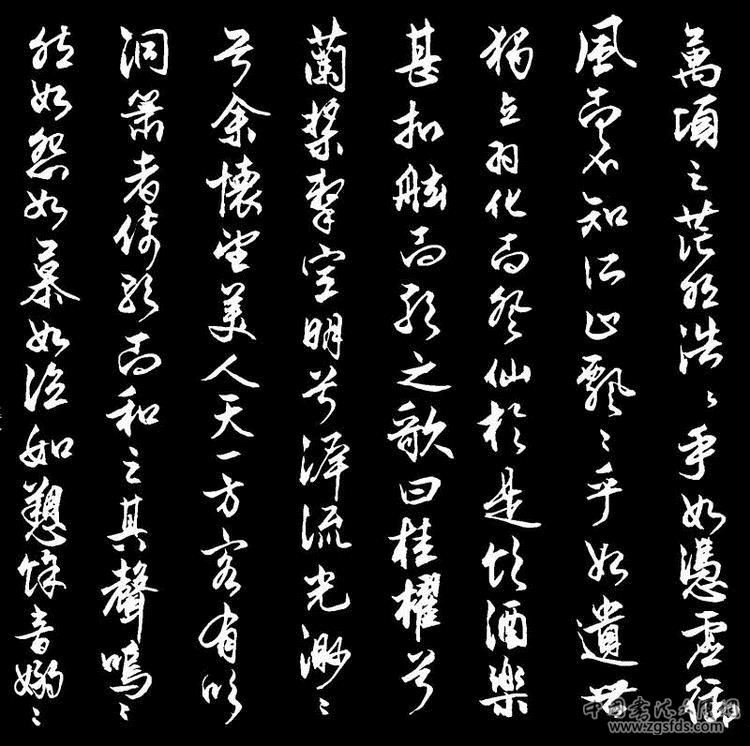 萬頃之茫然浩〻乎如憑虛御
風而不知所止飄〻乎如遺世
獨立羽化而登仙於是飲酒樂
甚扣舷而歌之歌曰桂櫂兮
蘭槳擊空明兮泝流光渺〻
兮余懷望美人天一方客有吹
洞簫者倚歌而和之其聲嗚〻
然如怨如慕如泣如愬餘音嫋〻
中国书法大师网
www.zgsfds.com